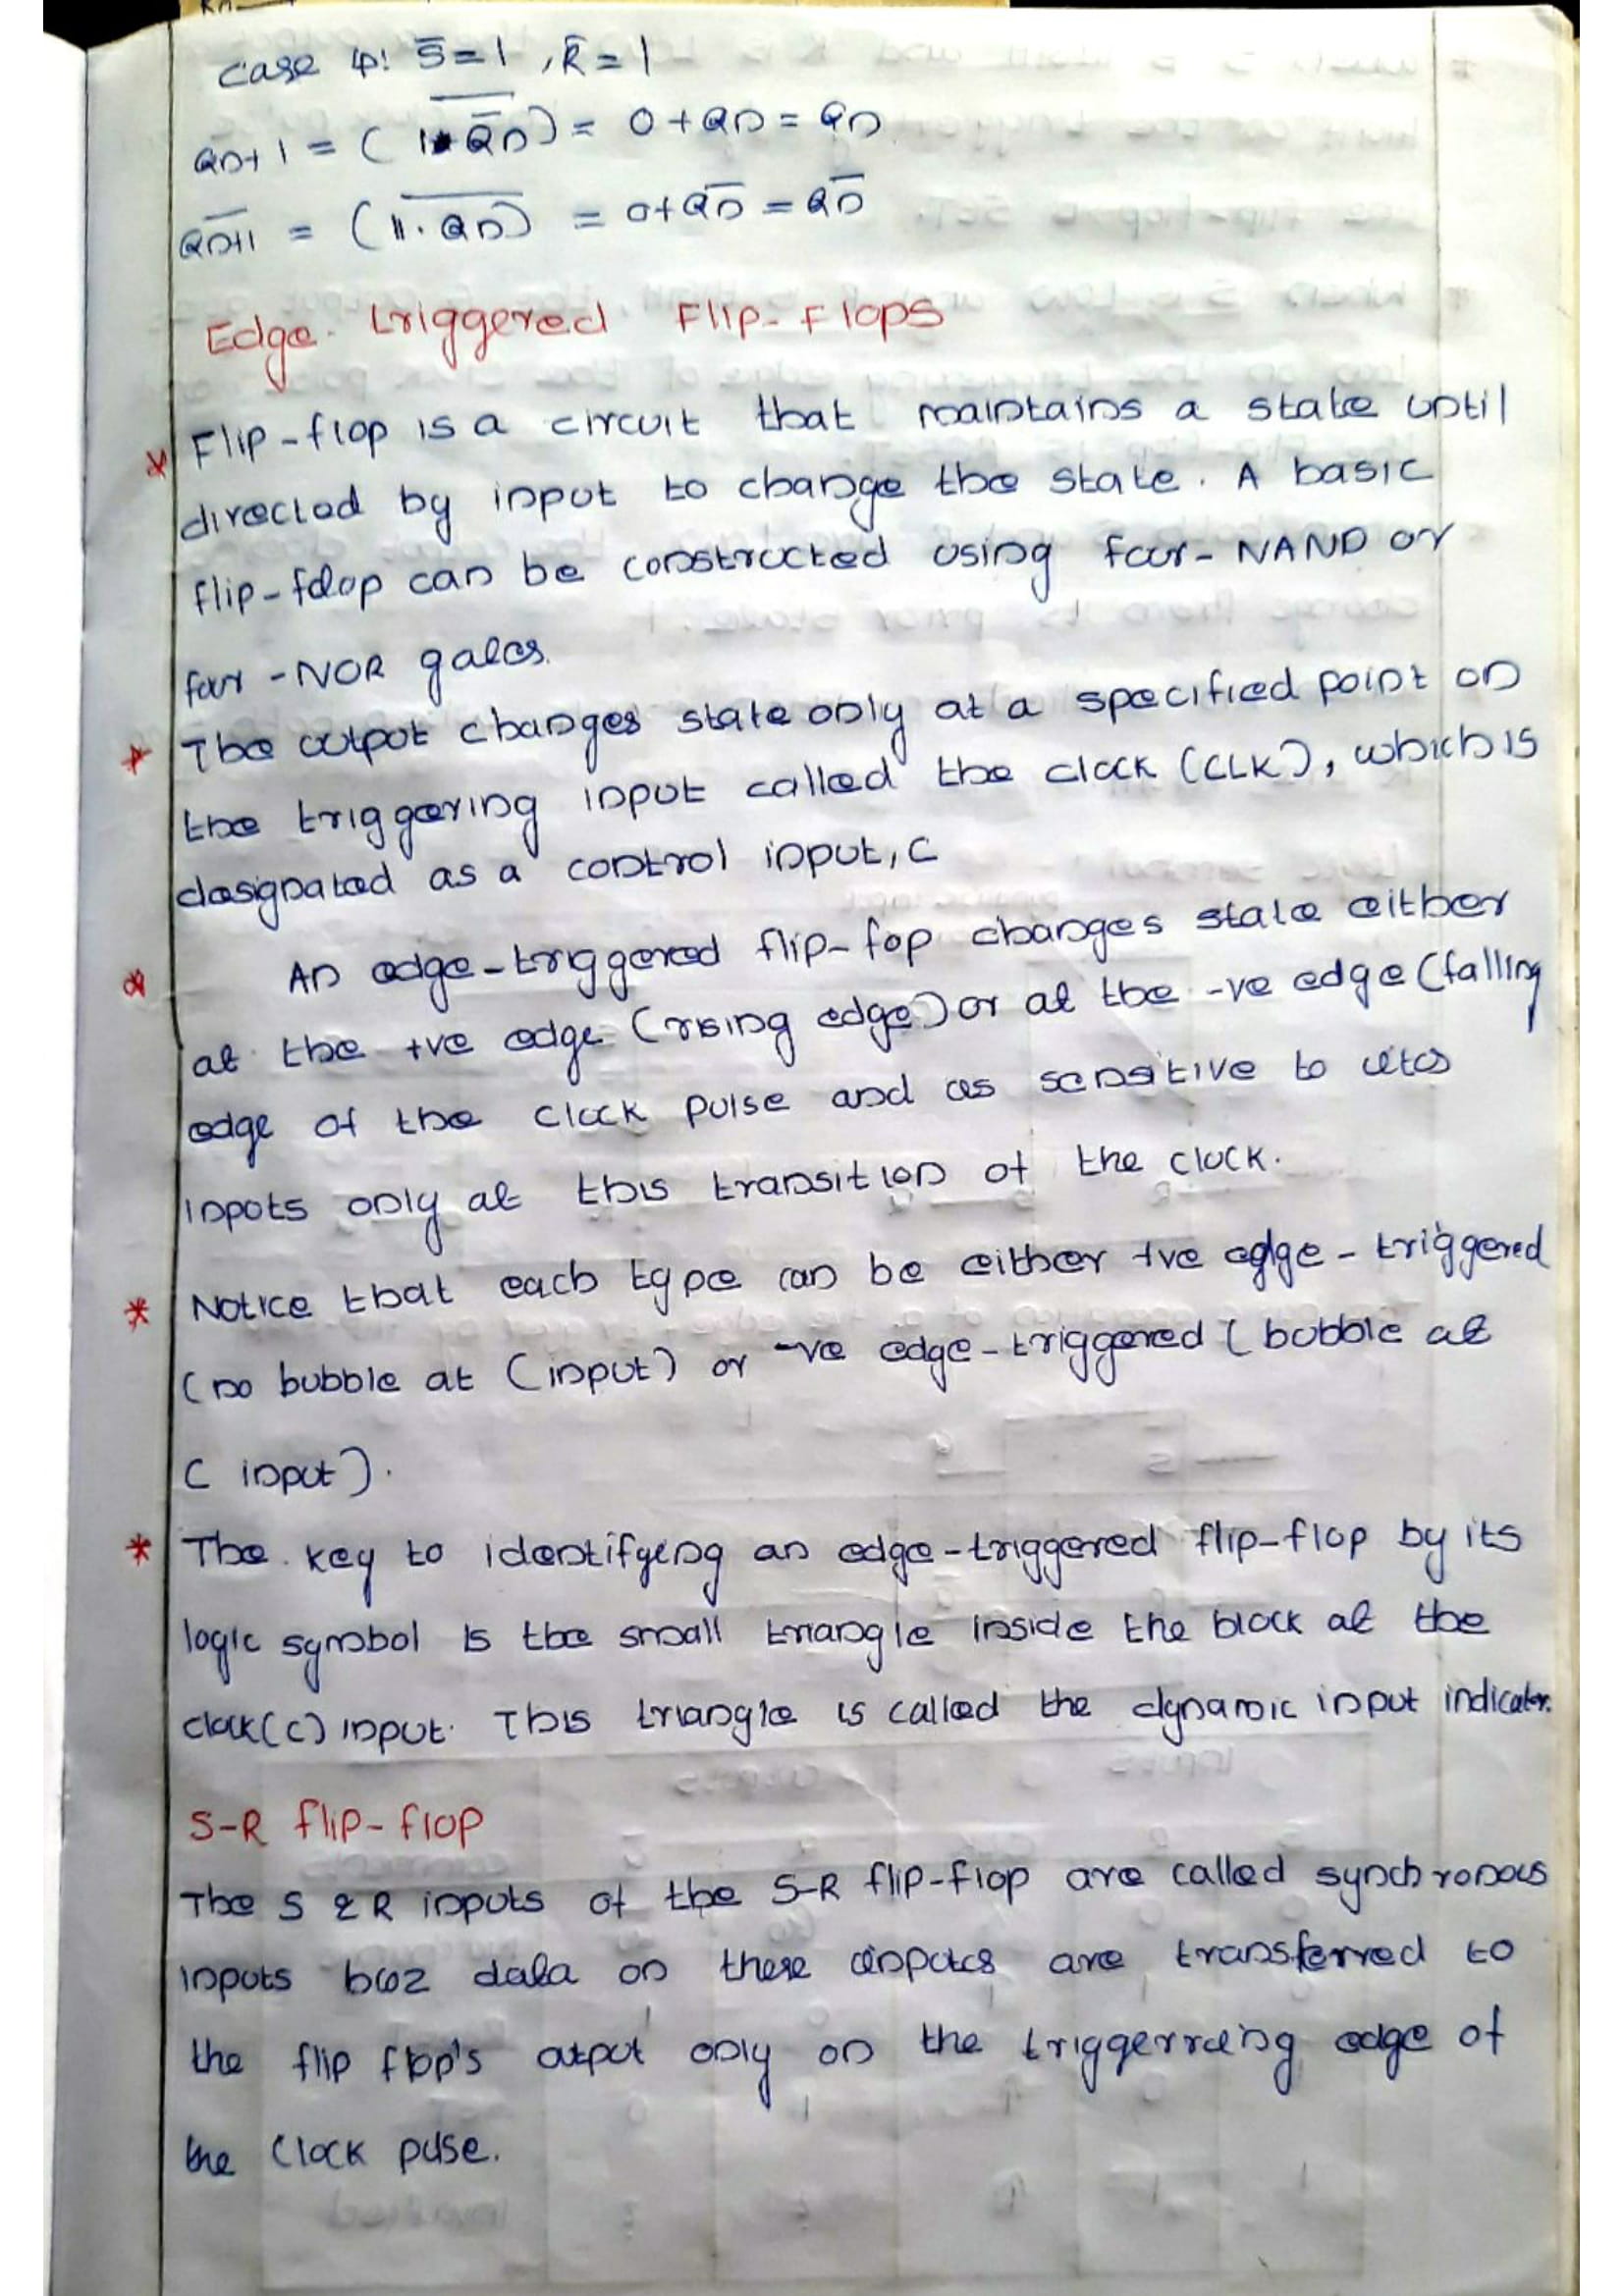 Case 4: S̅=1, R̅=1
Qn+1 = (1·Q̅n)‾ = 0+Qn = Qn
Q̅n+1 = (1·Qn)‾ = 0+Q̅n = Q̅n
Edge-triggered Flip-Flops
* Flip-flop is a circuit that maintains a state until
directed by input to change the state. A basic
flip-fdop can be constructed using four-NAND or
four-NOR gates.
* The output changes state only at a specified point on
the triggering input called the clock (CLK), which is
designated as a control input, C
* An edge-triggered flip-fop changes state either
at the +ve edge (rising edge) or at the -ve edge (falling
edge of the clock pulse and as sensitive to its
inputs only at this transition of the clock.
* Notice that each type can be either +ve edge-triggered
(no bubble at C input) or -ve edge-triggered (bubble at
C input).
* The key to identifying an edge-triggered flip-flop by its
logic symbol is the small triangle inside the block at the
clock(C) input. This triangle is called the dynamic input indicator.
S-R flip-flop
The S & R inputs of the S-R flip-flop are called synchronous
inputs bcoz data on these inputs are transferred to
the flip flop's output only on the triggerring edge of
the Clock pulse.